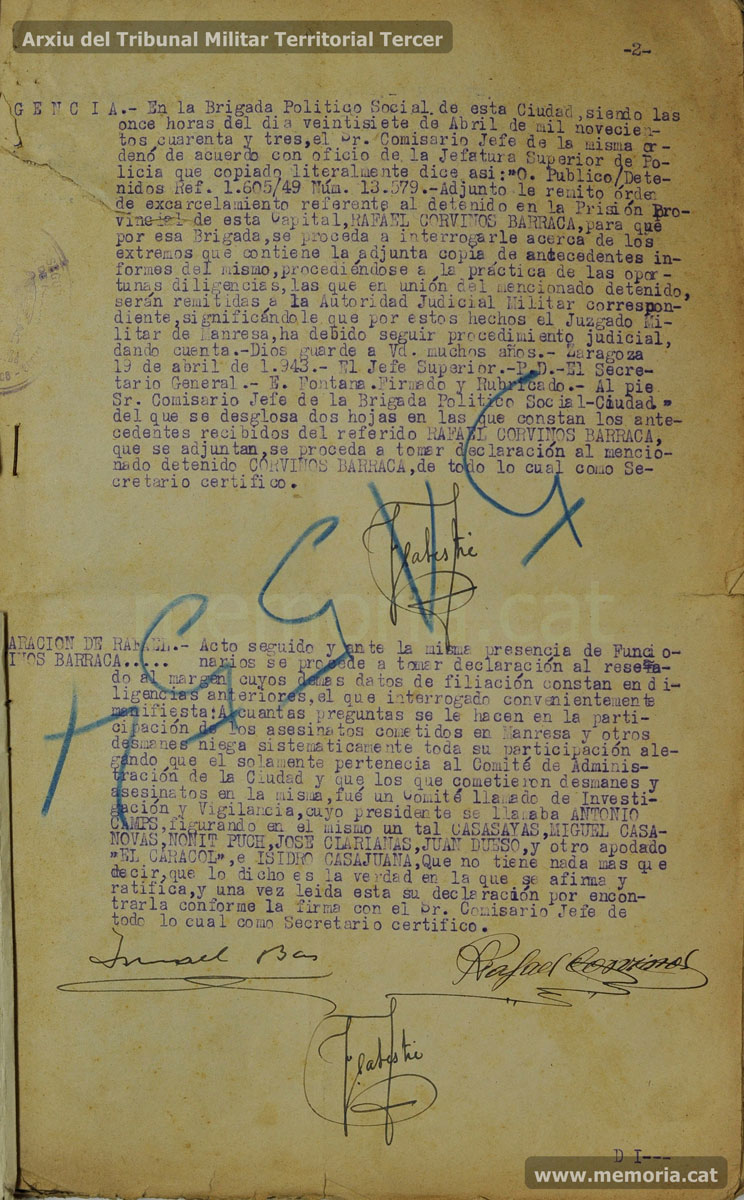 Arxiu del Tribunal Militar Territorial Tercer
-2-
GENCIA.- En la Brigada Politico Social de esta Ciudad,siendo las
once horas del dia veintisiete de Abril de mil novecien-
tos cuarenta y tres,el Sr. Comisario Jefe de la misma or-
denó de acuerdo con oficio de la Jefatura Superior de Po-
licia que copiado literalmente dice asi:"O. Publico/Dete-
nidos Ref. 1.605/49 Núm. 13.579.-Adjunto le remito órden
de excarcelamiento referente al detenido en la Prisión Pro-
vincial de esta Capital,RAFAEL CORVINOS BARRACA,para que
por esa Brigada,se proceda a interrogarle acerca de los
extremos que contiene la adjunta copia de antecedentes in-
formes del mismo,procediéndose a la práctica de las opor-
tunas diligencias,las que en unión del mencionado detenido,
serán remitidas a la Autoridad Judicial Militar correspon-
diente,significándole que por estos hechos el Juzgado Mi-
litar de Manresa,ha debido seguir procedimiento judicial,
dando cuenta.-Dios guarde a Vd. muchos años.- Zaragoza
19 de abril de 1.943.- El Jefe Superior.-P.D.-El Secre-
tario General.- E. Fontana.Firmado y Rubricado.- Al pie
Sr. Comisario Jefe de la Brigada Politico Social-Ciudad."
del que se desglosa dos hojas en las que constan los ante-
cedentes recibidos del referido RAFAEL CORVINOS BARRACA,
que se adjuntan,se proceda a tomar declaración al mencio-
nado detenido CORVINOS BARRACA,de todo lo cual como Se-
cretario certifico.
memoria.cat
ARACION DE RAFAEL.- Acto seguido y ante la misma presencia de Funcio-
INOS BARRACA..... narios se procede a tomar declaración al reseña-
do al margen cuyos demas datos de filiación constan en di-
ligencias anteriores,el que interrogado convenientemente
manifiesta:A cuantas preguntas se le hacen en la parti-
cipación de los asesinatos cometidos en Manresa y otros
desmanes niega sistematicamente toda su participación ale-
gando que el solamente pertenecia al Comité de Adminis-
tración de la Ciudad y que los que cometieron desmanes y
asesinatos en la misma,fué un Comité llamado de Investi-
gación y Vigilancia,cuyo presidente se llamaba ANTONIO
CAMPS,figurando en el mismo un tal CASASAYAS,MIGUEL CASA-
NOVAS,NONIT PUCH,JOSE CLARIANAS,JUAN DUESO,y otro apodado
"EL CARACOL",e ISIDRO CASAJUANA,Que no tiene nada mas que
decir,que lo dicho es la verdad en la que se afirma y
ratifica,y una vez leida esta su declaración por encon-
trarla conforme la firma con el Sr. Comisario Jefe de
todo lo cual como Secretario certifico.
Ismael Bas
Rafael Corvinos
D I---
www.memoria.cat